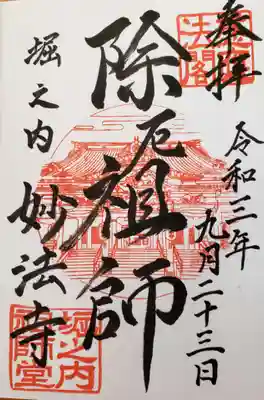 奉拝
令和三年
九月二十三日
除厄祖師
堀之内
妙法寺
堀之内
祖師堂